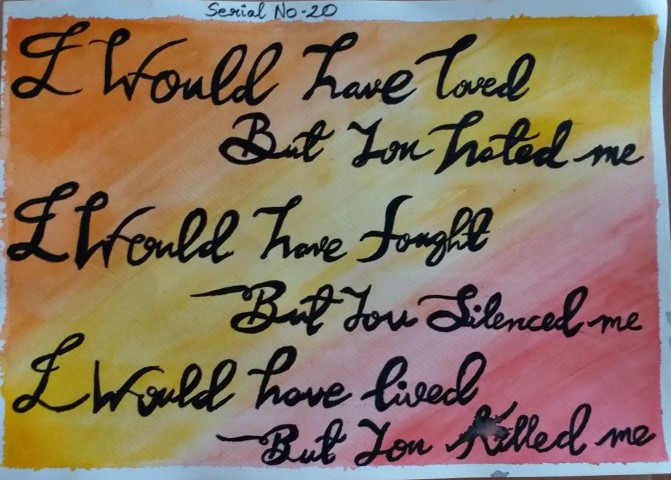 Serial No-20
I Would have loved
But You hated me
I Would have fought
But You Silenced me
I Would have lived
But You Killed me